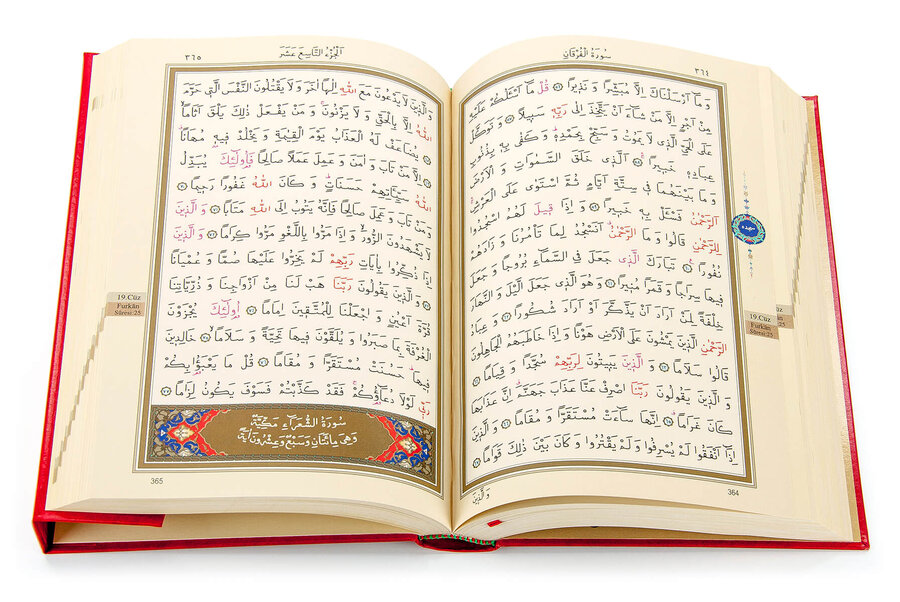 سُورَةُ الْفُرْقَانِ ٣٦٤
وَمَا اَرْسَلْنَاكَ اِلَّا مُبَشِّرًا وَنَذِيرًا ﴿٥٦﴾ قُلْ مَا اَسْـَٔلُكُمْ عَلَيْهِ
مِنْ اَجْرٍ اِلَّا مَنْ شَاءَ اَنْ يَتَّخِذَ اِلٰى رَبِّهِ سَبِيلًا ﴿٥٧﴾ وَتَوَكَّلْ
عَلَى الْحَيِّ الَّذِي لَا يَمُوتُ وَسَبِّحْ بِحَمْدِهِ وَكَفٰى بِهِ بِذُنُوبِ
عِبَادِهِ خَبِيرًا ﴿٥٨﴾ اَلَّذِي خَلَقَ السَّمٰوَاتِ وَالْاَرْضَ
وَمَا بَيْنَهُمَا فِي سِتَّةِ اَيَّامٍ ثُمَّ اسْتَوٰى عَلَى الْعَرْشِ
اَلرَّحْمٰنُ فَسْـَٔلْ بِهِ خَبِيرًا ﴿٥٩﴾ وَاِذَا قِيلَ لَهُمُ اسْجُدُوا
لِلرَّحْمٰنِ قَالُوا وَمَا الرَّحْمٰنُ اَنَسْجُدُ لِمَا تَأْمُرُنَا وَزَادَهُمْ
نُفُورًا ﴿٦٠﴾ تَبَارَكَ الَّذِي جَعَلَ فِي السَّمَاءِ بُرُوجًا وَجَعَلَ
فِيهَا سِرَاجًا وَقَمَرًا مُنِيرًا ﴿٦١﴾ وَهُوَ الَّذِي جَعَلَ الَّيْلَ وَالنَّهَارَ
خِلْفَةً لِمَنْ اَرَادَ اَنْ يَذَّكَّرَ اَوْ اَرَادَ شُكُورًا ﴿٦٢﴾ وَعِبَادُ
الرَّحْمٰنِ الَّذِينَ يَمْشُونَ عَلَى الْاَرْضِ هَوْنًا وَاِذَا خَاطَبَهُمُ الْجَاهِلُونَ
قَالُوا سَلَامًا ﴿٦٣﴾ وَالَّذِينَ يَبِيتُونَ لِرَبِّهِمْ سُجَّدًا وَقِيَامًا ﴿٦٤﴾
وَالَّذِينَ يَقُولُونَ رَبَّنَا اصْرِفْ عَنَّا عَذَابَ جَهَنَّمَ اِنَّ عَذَابَهَا
كَانَ غَرَامًا ﴿٦٥﴾ اِنَّهَا سَاءَتْ مُسْتَقَرًّا وَمُقَامًا ﴿٦٦﴾ وَالَّذِينَ
اِذَا اَنْفَقُوا لَمْ يُسْرِفُوا وَلَمْ يَقْتُرُوا وَكَانَ بَيْنَ ذٰلِكَ قَوَامًا ﴿٦٧﴾
وَالَّذِينَ
364
سجده
19.Cüz
Furkân
Sûresi:25
٣٦٥ اَلْجُزْءُ التَّاسِعَ عَشَرَ
وَالَّذِينَ لَا يَدْعُونَ مَعَ اللّٰهِ اِلٰهًا اٰخَرَ وَلَا يَقْتُلُونَ النَّفْسَ الَّتِي حَرَّمَ
اللّٰهُ اِلَّا بِالْحَقِّ وَلَا يَزْنُونَ وَمَنْ يَفْعَلْ ذٰلِكَ يَلْقَ اَثَامًا ﴿٦٨﴾
يُضَاعَفْ لَهُ الْعَذَابُ يَوْمَ الْقِيٰمَةِ وَيَخْلُدْ فِيهِ مُهَانًا ﴿٦٩﴾
اِلَّا مَنْ تَابَ وَاٰمَنَ وَعَمِلَ عَمَلًا صَالِحًا فَاُولٰئِكَ يُبَدِّلُ
اللّٰهُ سَيِّـَٔاتِهِمْ حَسَنَاتٍ وَكَانَ اللّٰهُ غَفُورًا رَحِيمًا ﴿٧٠﴾
وَمَنْ تَابَ وَعَمِلَ صَالِحًا فَاِنَّهُ يَتُوبُ اِلَى اللّٰهِ مَتَابًا ﴿٧١﴾ وَالَّذِينَ
لَا يَشْهَدُونَ الزُّورَ وَاِذَا مَرُّوا بِاللَّغْوِ مَرُّوا كِرَامًا ﴿٧٢﴾ وَالَّذِينَ
اِذَا ذُكِّرُوا بِاٰيَاتِ رَبِّهِمْ لَمْ يَخِرُّوا عَلَيْهَا صُمًّا وَعُمْيَانًا
﴿٧٣﴾ وَالَّذِينَ يَقُولُونَ رَبَّنَا هَبْ لَنَا مِنْ اَزْوَاجِنَا وَذُرِّيَّاتِنَا
قُرَّةَ اَعْيُنٍ وَاجْعَلْنَا لِلْمُتَّقِينَ اِمَامًا ﴿٧٤﴾ اُولٰئِكَ يُجْزَوْنَ
الْغُرْفَةَ بِمَا صَبَرُوا وَيُلَقَّوْنَ فِيهَا تَحِيَّةً وَسَلَامًا ﴿٧٥﴾ خَالِدِينَ
فِيهَا حَسُنَتْ مُسْتَقَرًّا وَمُقَامًا ﴿٧٦﴾ قُلْ مَا يَعْبَؤُا بِكُمْ
رَبِّي لَوْلَا دُعَاؤُكُمْ فَقَدْ كَذَّبْتُمْ فَسَوْفَ يَكُونُ لِزَامًا ﴿٧٧﴾
سُورَةُ الشُّعَرَاءِ مَكِّيَّةٌ
وَهِيَ مِائَتَانِ وَسَبْعٌ وَعِشْرُونَ اٰيَةً
365
19.Cüz
Furkân
Sûresi:25